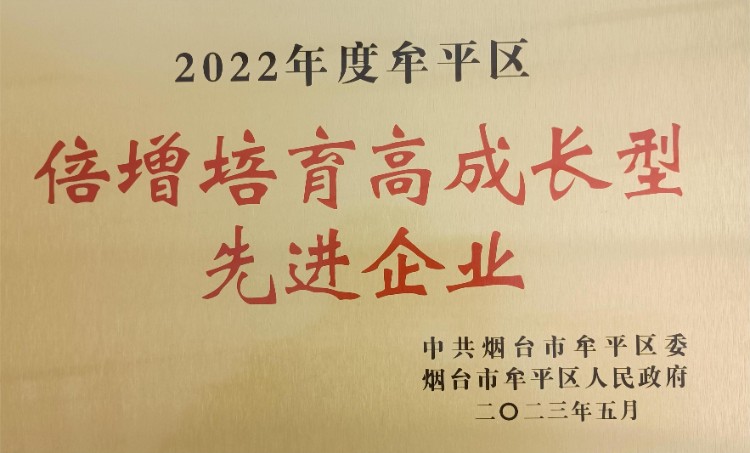 2022年度牟平区
倍增培育高成长型
先进企业
中共烟台市牟平区委
烟台市牟平区人民政府
二〇二三年五月